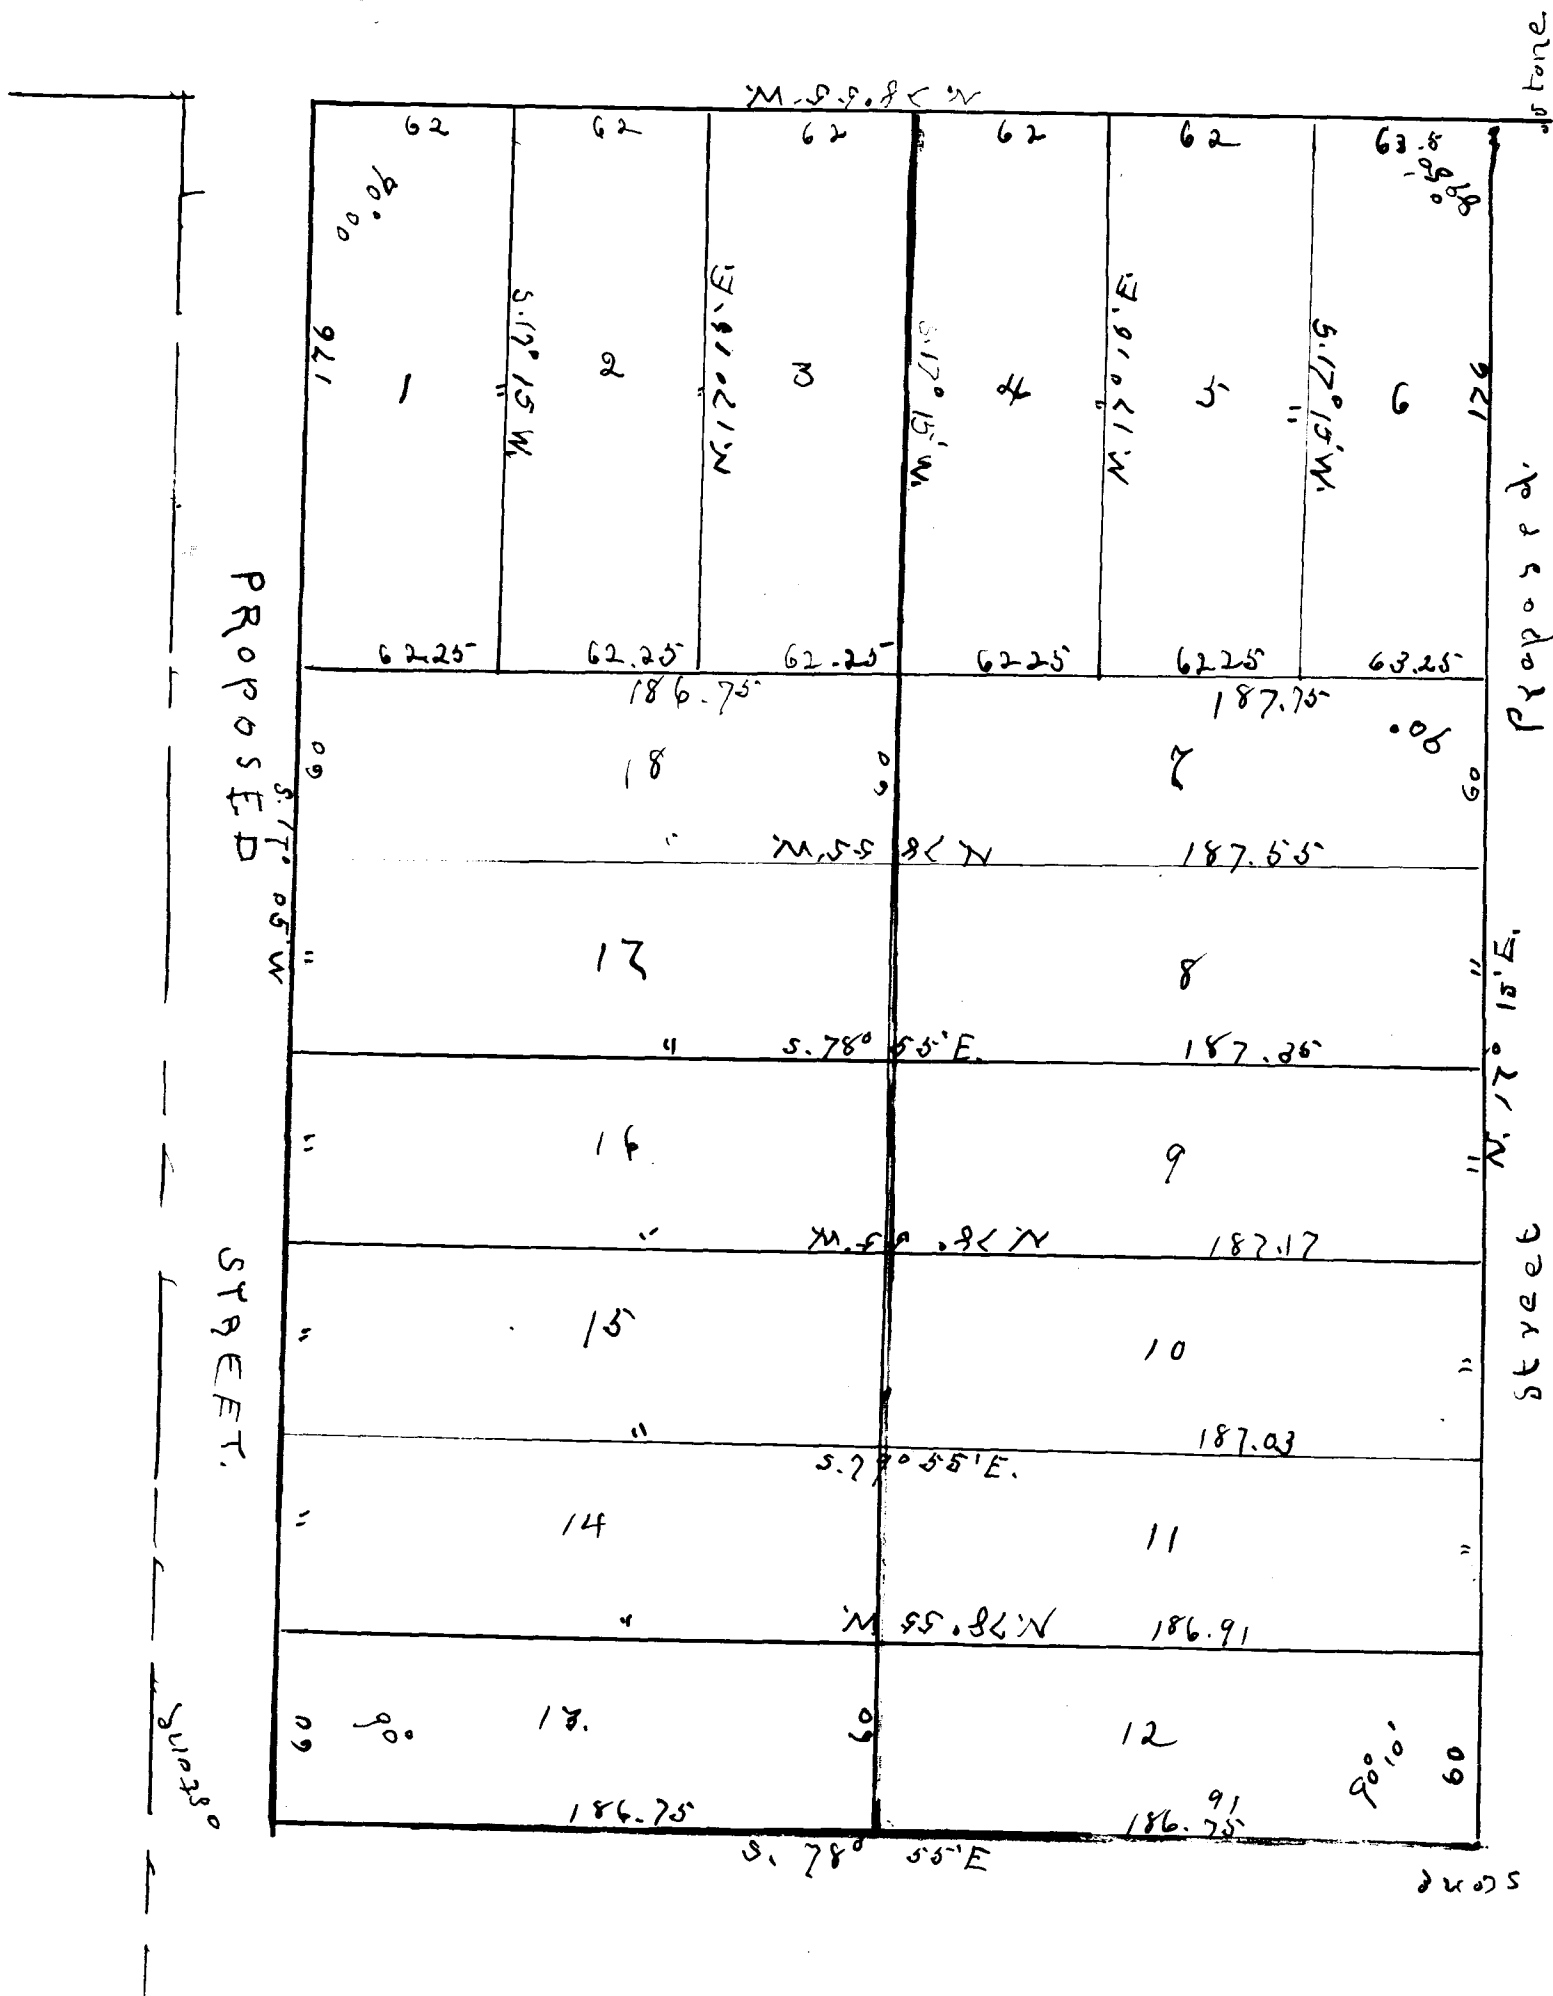 stone
N. 78° 55' W.
62 62 62 62 62 63.5
90° 00
89° 50'
176 176
S. 17° 15' W.
N. 17° 15' E.
S. 17° 15' W.
N. 17° 15' E.
S. 17° 15' W.
1 " 2 " 3 4 " 5 " 6
62.25 62.25 62.25 62.25 62.25 63.25
186.75 187.75
90°
60 18 60 7 60
" N 78 55' W. 187.55
" 17 8 "
" S. 78° 55' E. 187.35
" 16 9 "
" N. 78° 55' W. 187.17
" 15 10 "
" 187.03
S. 78° 55' E.
" 14 11 "
" N. 78° 55 W. 186.91
60 90° 13. 60 12 90° 10' 60
91
186.75 186.75
S. 78° 55' E
stone
PROPOSED STREET.
S. 17° 05' W
Proposed Street
N. 17° 15' E.
stone